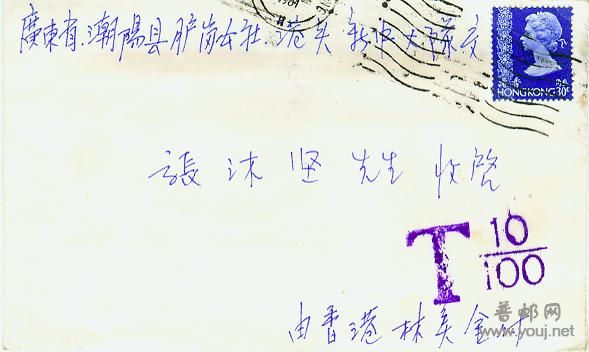 廣東省.潮陽县胪岗公社.港头新 大隊交
香港
HONG KONG 30¢
張沐坚先生收啓
T 10/100
由香港林美金
普邮网
www.youj.net